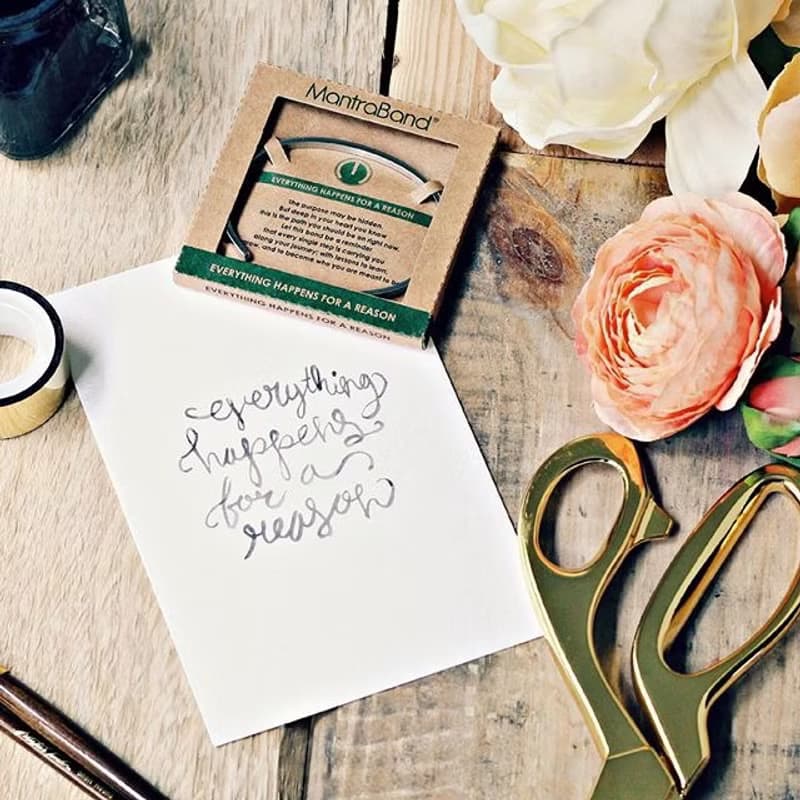 MantraBand®
EVERYTHING HAPPENS FOR A REASON
The purpose may be hidden.
But deep in your heart you know
this is the path you should be on right now.
Let this band be a reminder
that every single step is carrying you
along your journey; with lessons to learn,
and to become who you are meant to
EVERYTHING HAPPENS FOR A REASON
EVERYTHING HAPPENS FOR A REASON
everything
happens
for a
reason